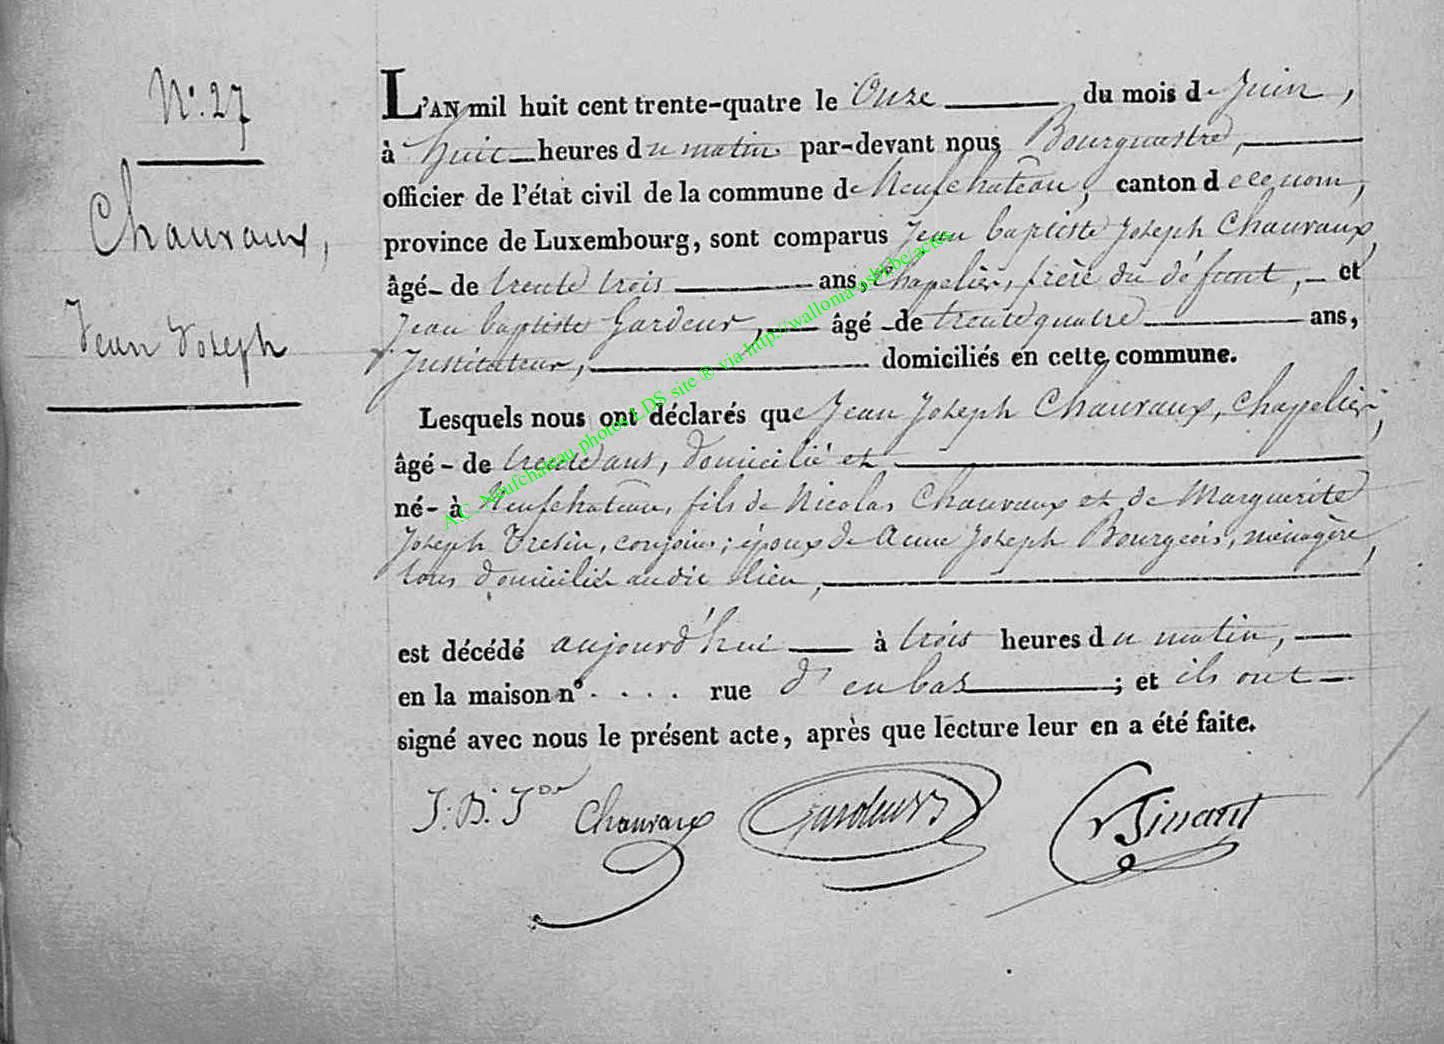 N°. 27
Chauvaux,
Jean Joseph
L'AN mil huit cent trente-quatre le Onze du mois de Juin,
à huit heures du matin par-devant nous Bourgmestre,
officier de l'état civil de la commune de Neufchateau, canton de ce nom,
province de Luxembourg, sont comparus Jean baptiste Joseph Chauvaux,
âgé- de trente trois ans, chapelier, frère du défunt, - et
Jean baptiste Gardeur, âgé -de trente quatre ans,
Instituteur, domiciliés en cette commune.
Lesquels nous ont déclarés que Jean Joseph Chauvaux, chapelier,
âgé - de trente ans, domicilié et
né - à Neufchateau, fils de Nicolas Chauvaux et de Marguerite
Joseph Tresin, conjoins; époux de Anne Joseph Bourgeois, ménagère,
tous domicilié audit lieu,
est décédé aujourd'hui à trois heures du matin,
en la maison n° . . . . rue d'en bas ; et ils ont
signé avec nous le présent acte, après que lecture leur en a été faite.
J. B. J Chauvaux Gardeur
A.C. Neufchateau photos LDS site ® via-http://wallonia-asbl.be/actes